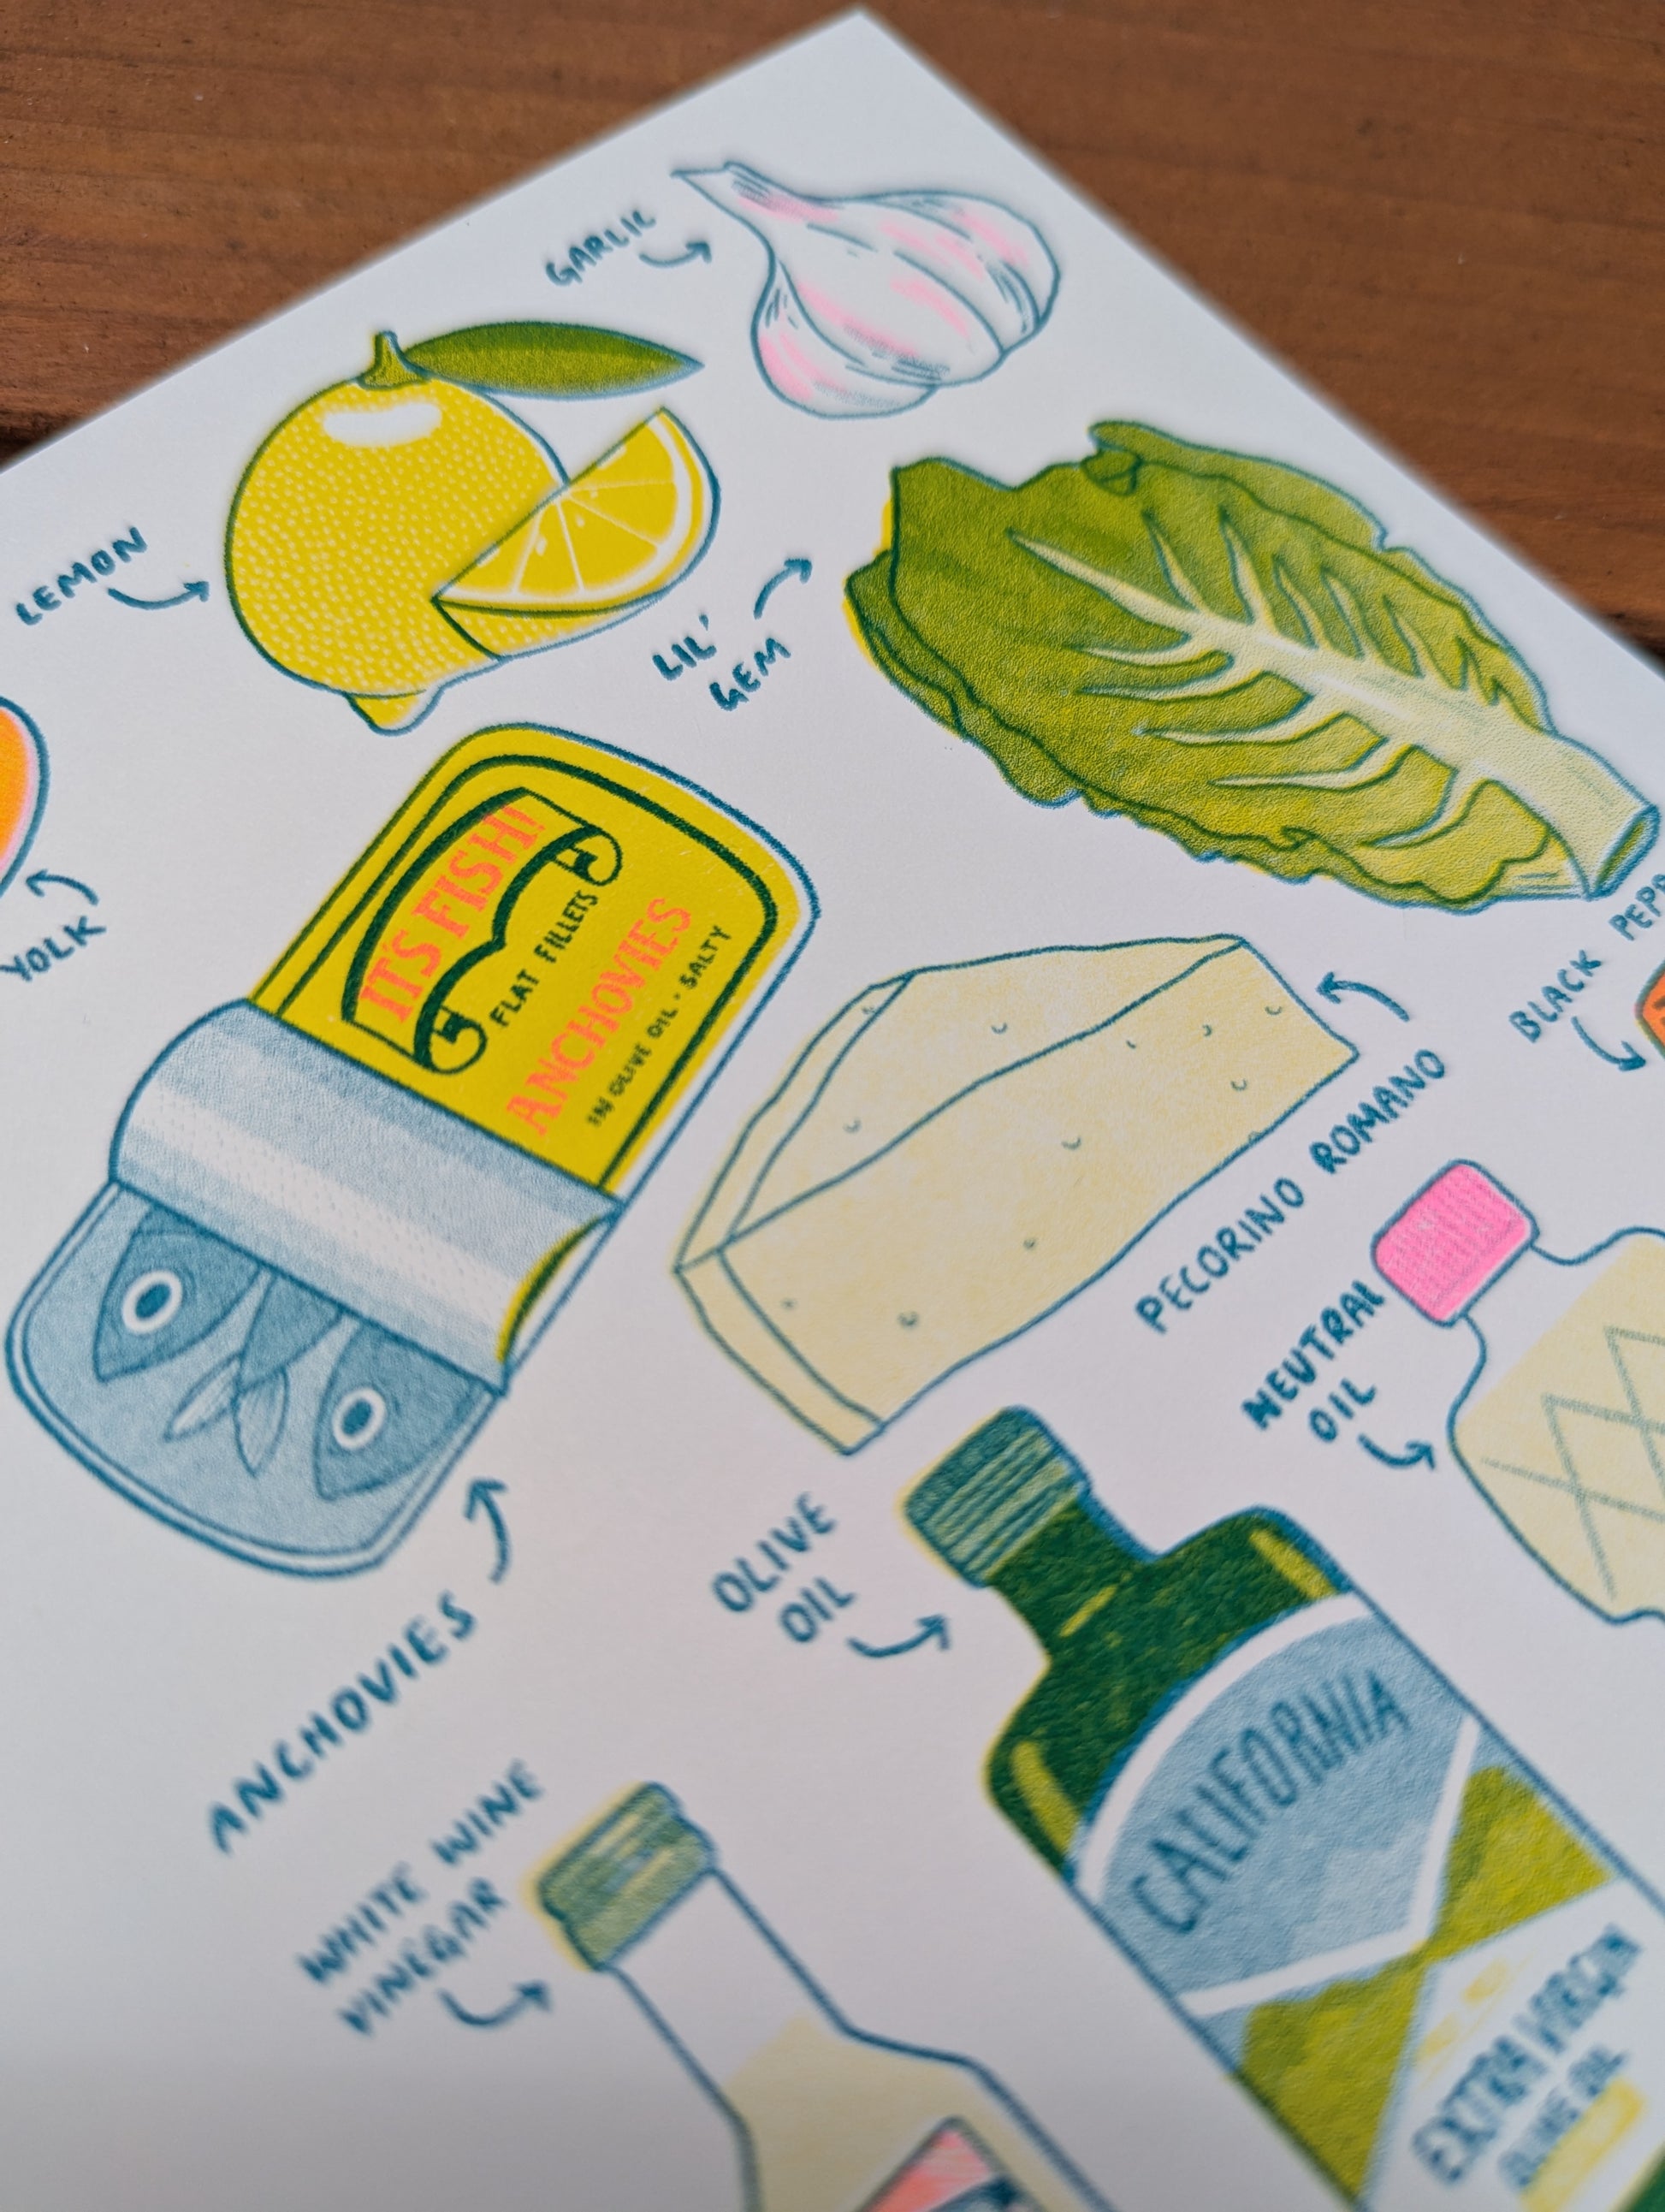 GARLIC
LEMON
LIL'
GEM
YOLK
IT'S FISH!
FLAT FILLETS
ANCHOVIES
IN OLIVE OIL · SALTY
BLACK
PECORINO ROMANO
NEUTRAL
OIL
ANCHOVIES
OLIVE
OIL
CALIFORNIA
EXTRA VIRGIN
OLIVE OIL
WHITE WINE
VINEGAR